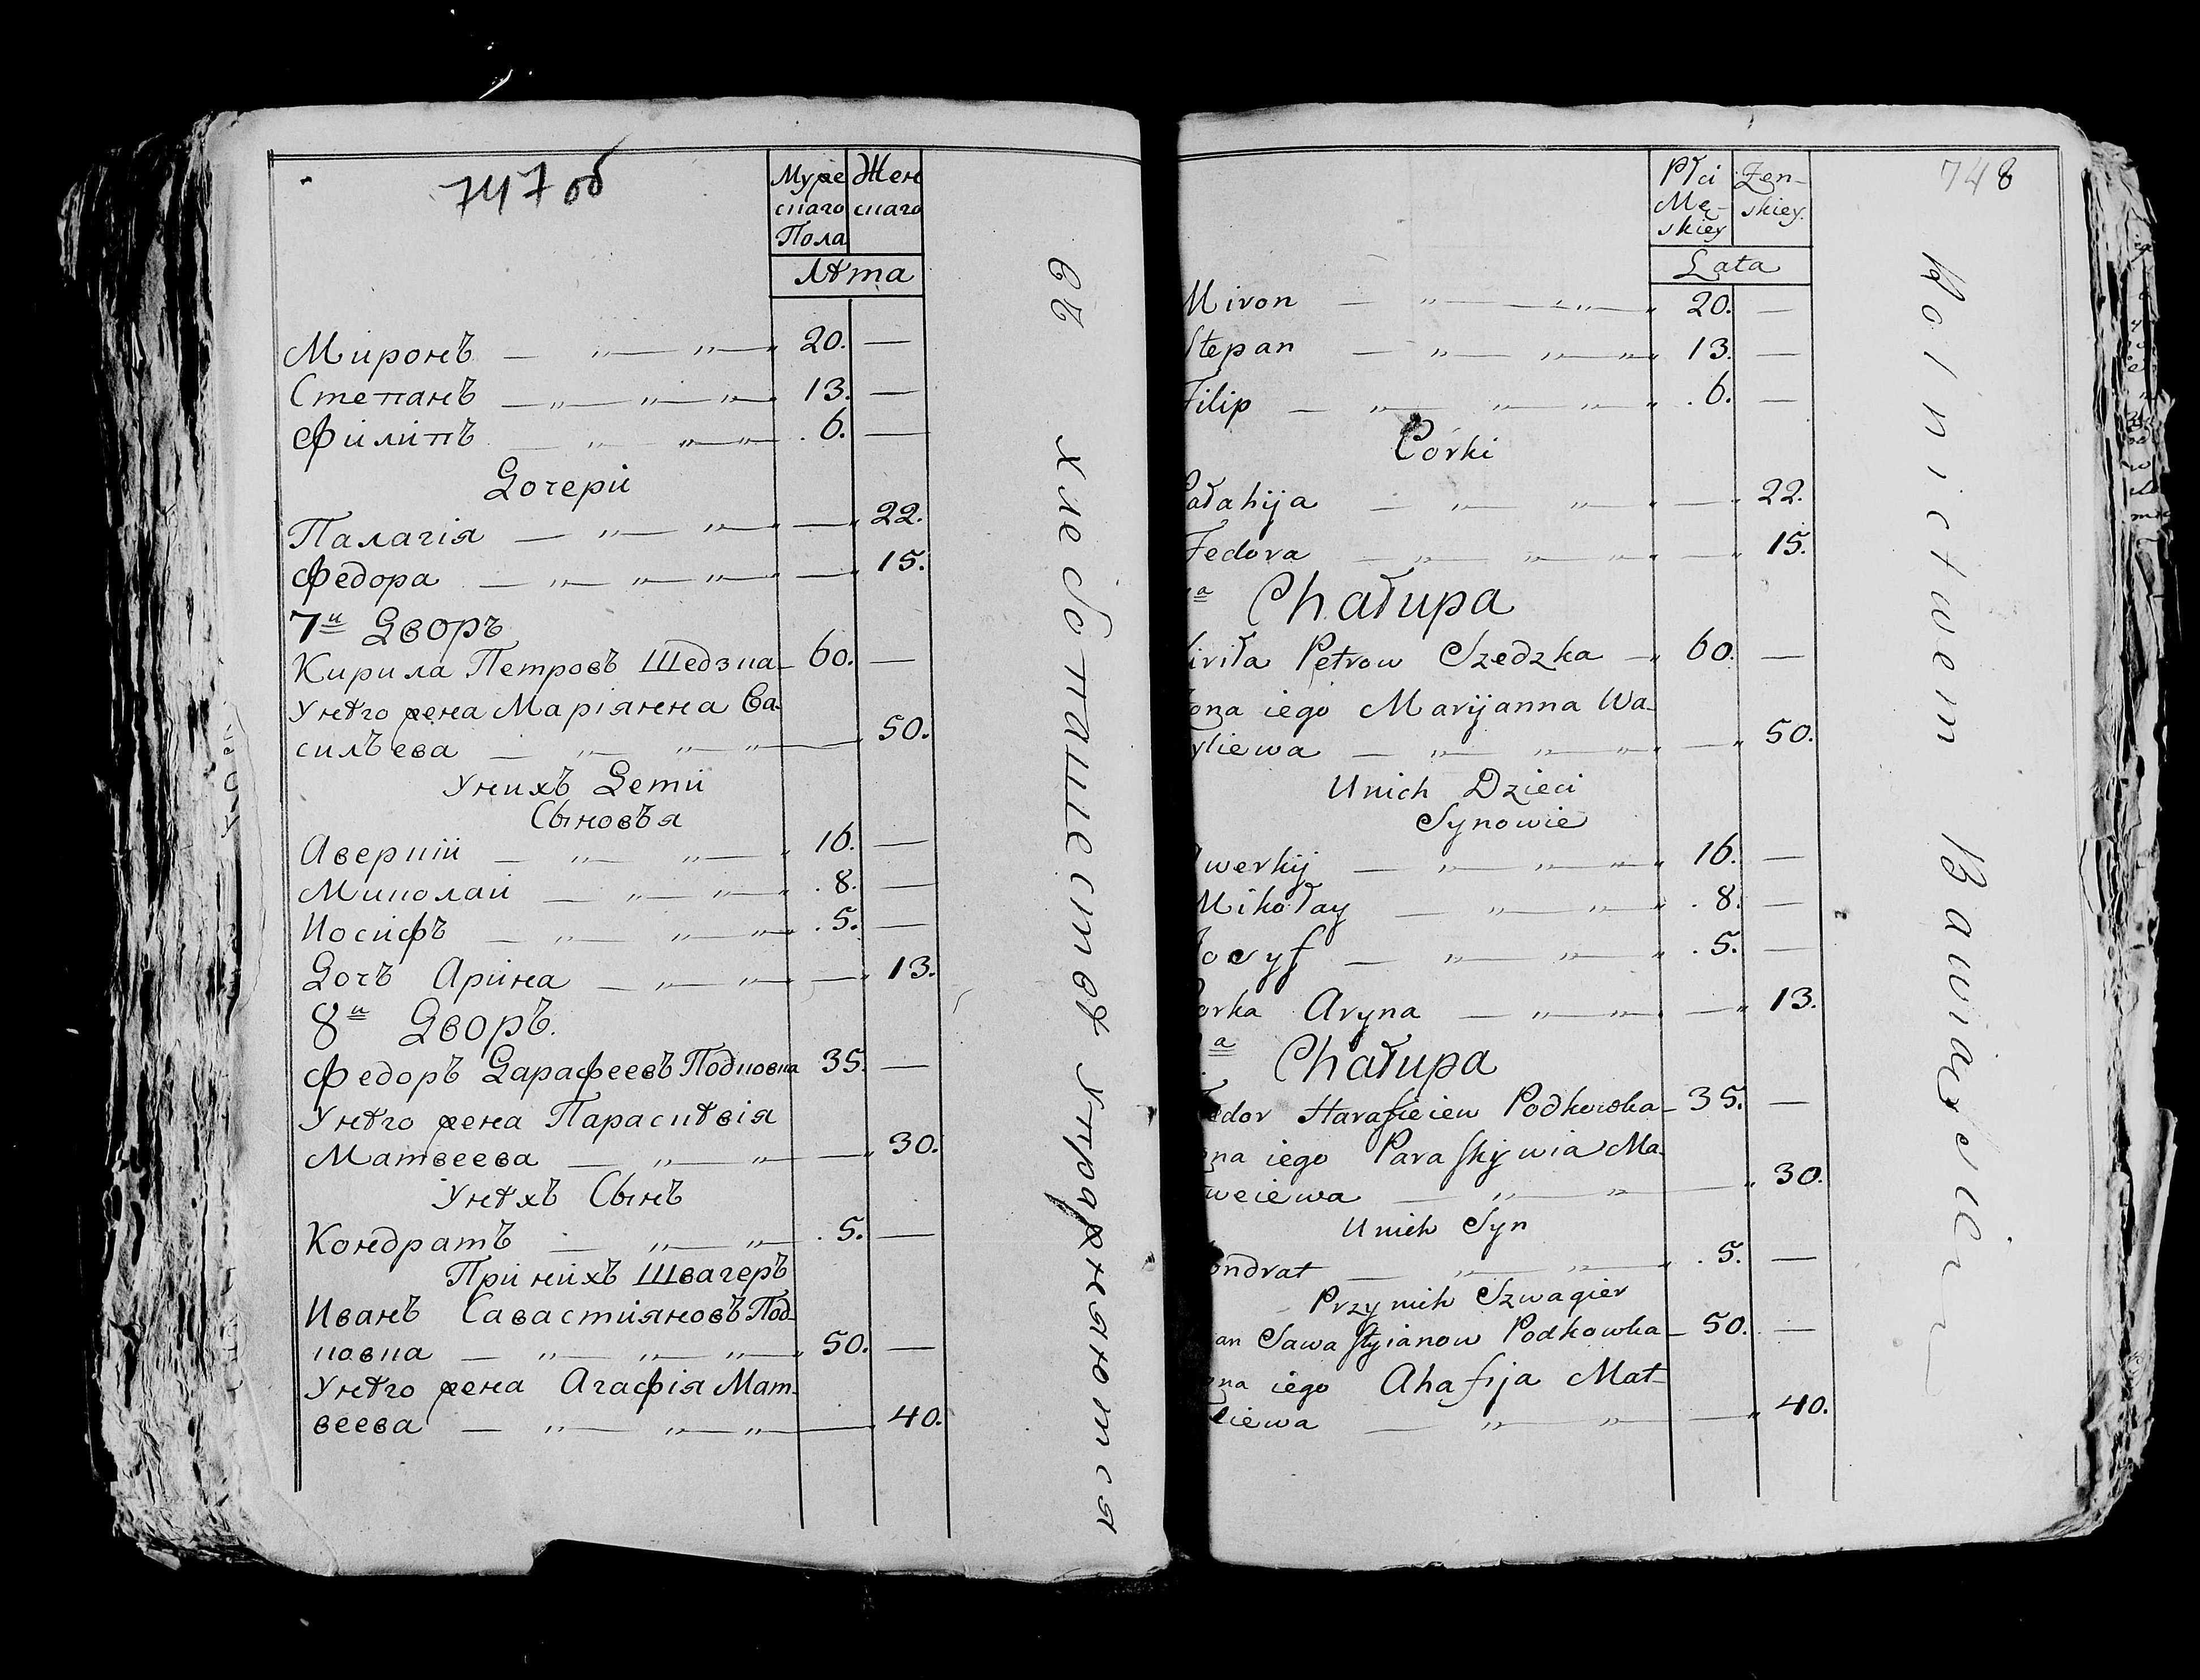 747 об
Муже Жен
скаго скаго
Пола
Лѣта
Миронъ 20.
Степанъ 13.
Филипъ 6.
Дочери
Палагія 22.
Федора 15.
7й Дворъ
Кирила Петровъ Шедзка 60.
Унѣго жена Маріянна Ва-
сильева 50.
Унихъ Дети
Сыновья
Аверкій 16.
Миколай 8.
Иосифъ 5.
Дочъ Арина 13.
8й Дворъ.
Федоръ Гарафеевъ Подковка 35.
Унѣго жена Параскѣвія
Матвеева 30.
Унѣхъ Сынъ
Кондратъ 5.
При нихъ Швагеръ
Иванъ Савастияновъ Под-
ковка 50.
Унѣго жена Агафія Мат-
веева 40.
Хлебопашествѣ упражняются
748
Płci Zen-
Mę- skiey.
skiey
Lata
Miron 20.
Stepan 13.
Filip 6.
Corki
Pałahija 22.
Fedora 15.
a Chałupa
Kiriła Petrow Szedzka 60.
żona iego Marijanna Wa-
syliewa 50.
Unich Dzieci
Synowie
Awerkij 16.
Mikołay 8.
Josyf 5.
Corka Aryna 13.
a Chałupa
Fedor Harafieiew Podkowka 35.
żona iego Paraskywia Ma-
tweiewa 30.
Unich Syn
Kondrat 5.
Przynich Szwagier
an Sawastyianow Podkowka 50.
żona iego Ahafija Mat-
wiewa 40.
Rolnictwem Bawią sie